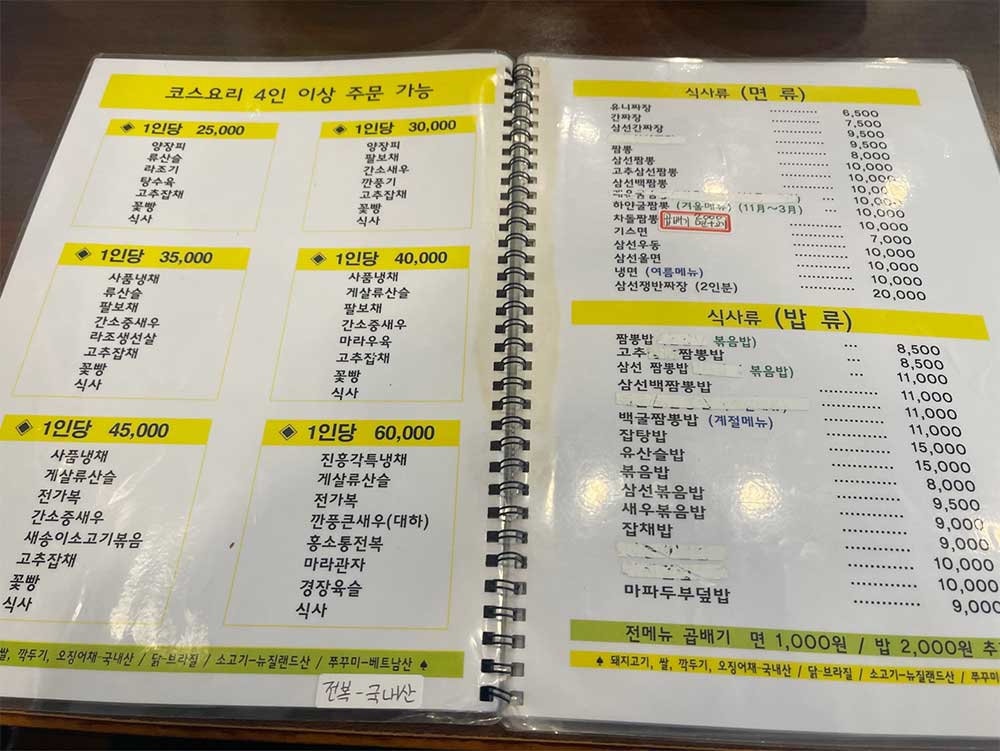 코스요리 4인 이상 주문 가능
◈ 1인당 25,000
양장피
류산슬
라조기
탕수육
고추잡채
꽃빵
식사
◈ 1인당 30,000
양장피
팔보채
간소새우
깐풍기
고추잡채
꽃빵
식사
◈ 1인당 35,000
사품냉채
류산슬
팔보채
간소중새우
라조생선살
고추잡채
꽃빵
식사
◈ 1인당 40,000
사품냉채
게살류산슬
팔보채
간소중새우
마라우육
고추잡채
꽃빵
식사
◈ 1인당 45,000
사품냉채
게살류산슬
전가복
간소중새우
새송이소고기볶음
고추잡채
꽃빵
식사
◈ 1인당 60,000
진흥각특냉채
게살류산슬
전가복
깐풍큰새우(대하)
홍소통전복
마라관자
경장육슬
식사
쌀, 깍두기, 오징어채-국내산 / 닭-브라질 / 소고기-뉴질랜드산 / 쭈꾸미-베트남산 ♠
전복-국내산
식사류 (면 류)
유니짜장 6,500
간짜장 7,500
삼선간짜장 9,500
9,500
짬뽕 8,000
삼선짬뽕 10,000
고추삼선짬뽕 10,000
삼선백짬뽕 10,000
하얀굴짬뽕 (겨울메뉴) (11月~3月) 10,000
차돌짬뽕 곱빼기 10,000
기스면 7,000
삼선우동 10,000
삼선울면 10,000
냉면 (여름메뉴) 10,000
삼선쟁반짜장 (2인분) 20,000
식사류 (밥 류)
짬뽕밥 볶음밥) 8,500
고추 짬뽕밥 8,500
삼선 짬뽕밥 볶음밥) 11,000
삼선백짬뽕밥 11,000
11,000
백굴짬뽕밥 (계절메뉴) 11,000
잡탕밥 15,000
유산슬밥 15,000
볶음밥 8,000
삼선볶음밥 9,500
새우볶음밥 9,000
잡채밥 9,000
10,000
10,000
마파두부덮밥 9,000
전메뉴 곱배기 면 1,000원 / 밥 2,000원 추
♠ 돼지고기, 쌀, 깍두기, 오징어채-국내산 / 닭-브라질 / 소고기-뉴질랜드산 / 쭈꾸미-